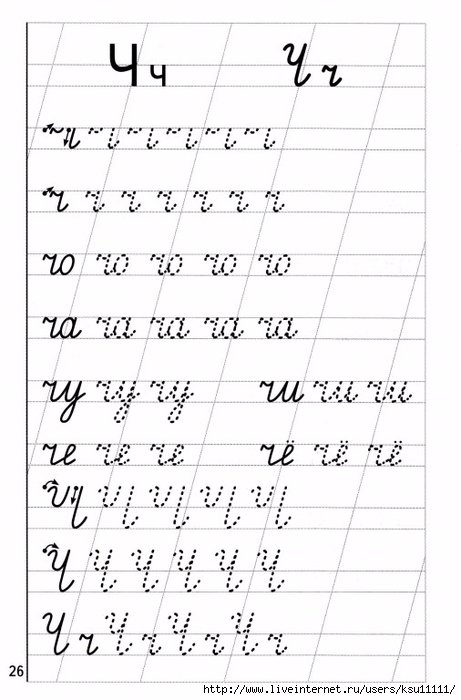 Ч ч Ч ч
ч ч ч ч ч ч ч
чо чо чо чо чо
ча ча ча ча ча
чу чу чу чи чи чи
че че че чё чё чё
Ч Ч Ч Ч Ч Ч
Ч ч Ч ч Ч ч Ч ч
26
http://www.liveinternet.ru/users/ksu11111/